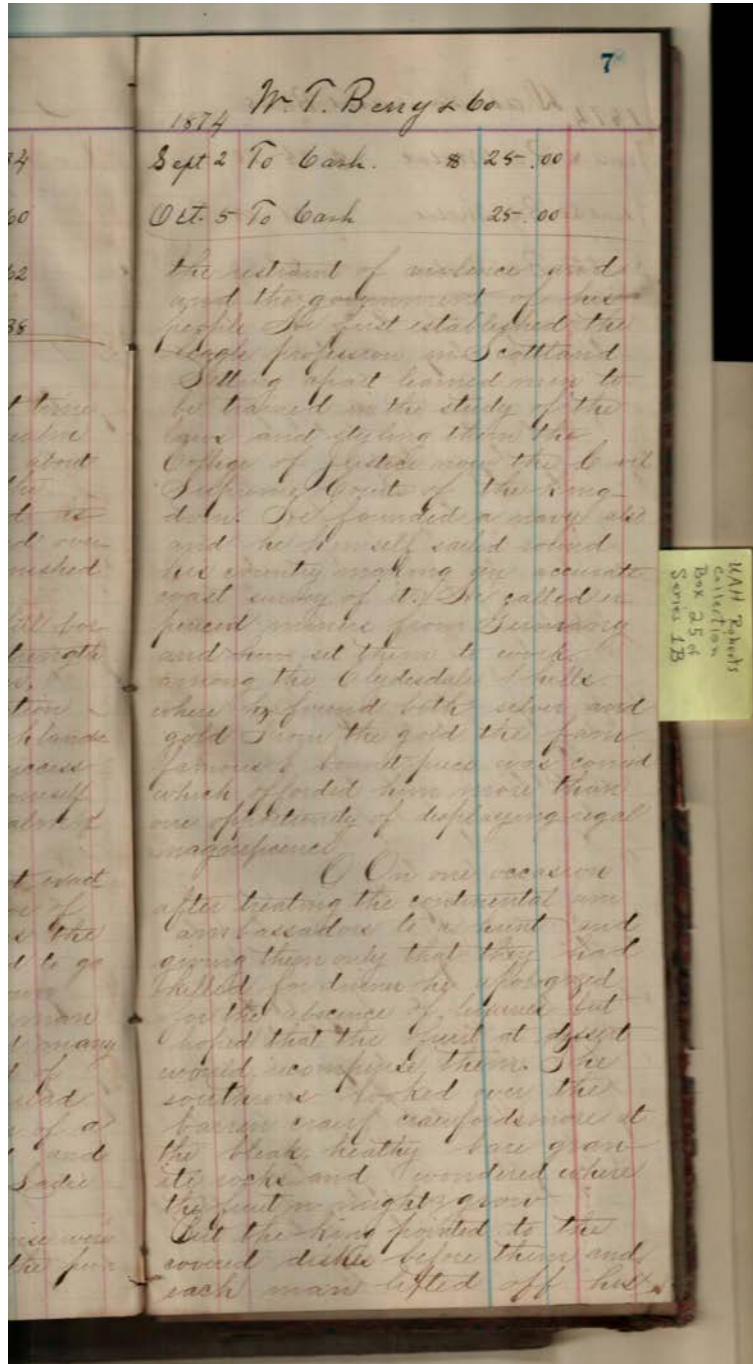 7
W. T. Berry & Co
1874
Sept 2 To Cash. $ 25.00
Oct. 5 To Cash 25.00
the restraint of violence and
and the government of his
people He first established the
leagle profession in Scottland
Setting apart learned men to
be trained in the study of the
laws and styling them the
College of Justice now the Civil
Supreme Courts of the King-
dom. He founded a navy also
and he himself sailed round
his country making an accurate
coast survey of it. He called ex
perienced miners from Germany
and set them to work
among the Clydesdale hills
where he found both silver and
gold From the gold the fam
famous bonnet piece was coined
which afforded him more than
one oppertunity of displaying regal
magnificence
On one occasion
after treating the continental am
ambassadors to a hunt and
giving them only that they had
killed for dinner he apologized
for the absence of but
hoped that the fruit at desert
would recompense them. The
southrons looked over the
barren crawf crawfordsmore at
the bleak, heathy bare gran-
ite rocks and wondered where
the fruit might grow
But the king pointed to the
covered dishes before them and
each man lifted off his
34
60
62
38
t time
realm
about
the
d as
ed over
nished
strength
tion
hlands
success
himself
realm &
t exact
s the
d to go
man
d many
d of
read
s of a
and
Sadie
wise were
the fur
UAH Roberts
Collection
Box 25 of
Series 1B